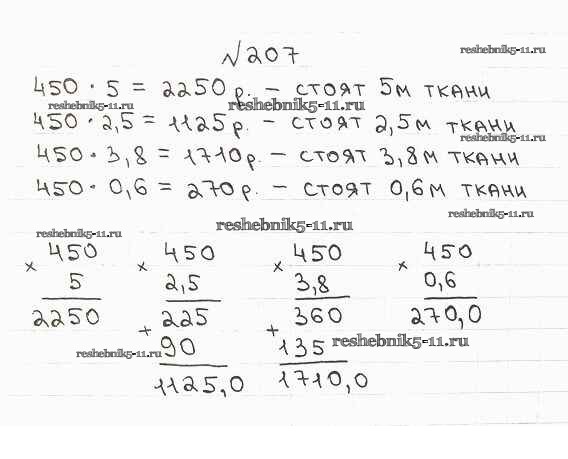 №207
reshebnik5-11.ru
450 · 5 = 2250 р. – стоят 5м ткани
reshebnik5-11.ru reshebnik5-11.ru
450 · 2,5 = 1125 р. – стоят 2,5м ткани
reshebnik5-11.ru
450 · 3,8 = 1710 р. – стоят 3,8м ткани
450 · 0,6 = 270 р. – стоят 0,6м ткани
reshebnik5-11.ru
reshebnik5-11.ru
reshebnik5-11.ru
450 450 450 450
× 5 × 2,5 × 3,8 × 0,6
2250 225 360 270,0
+ 90 + 135
reshebnik5-11.ru
reshebnik5-11.ru
1125,0 1710,0